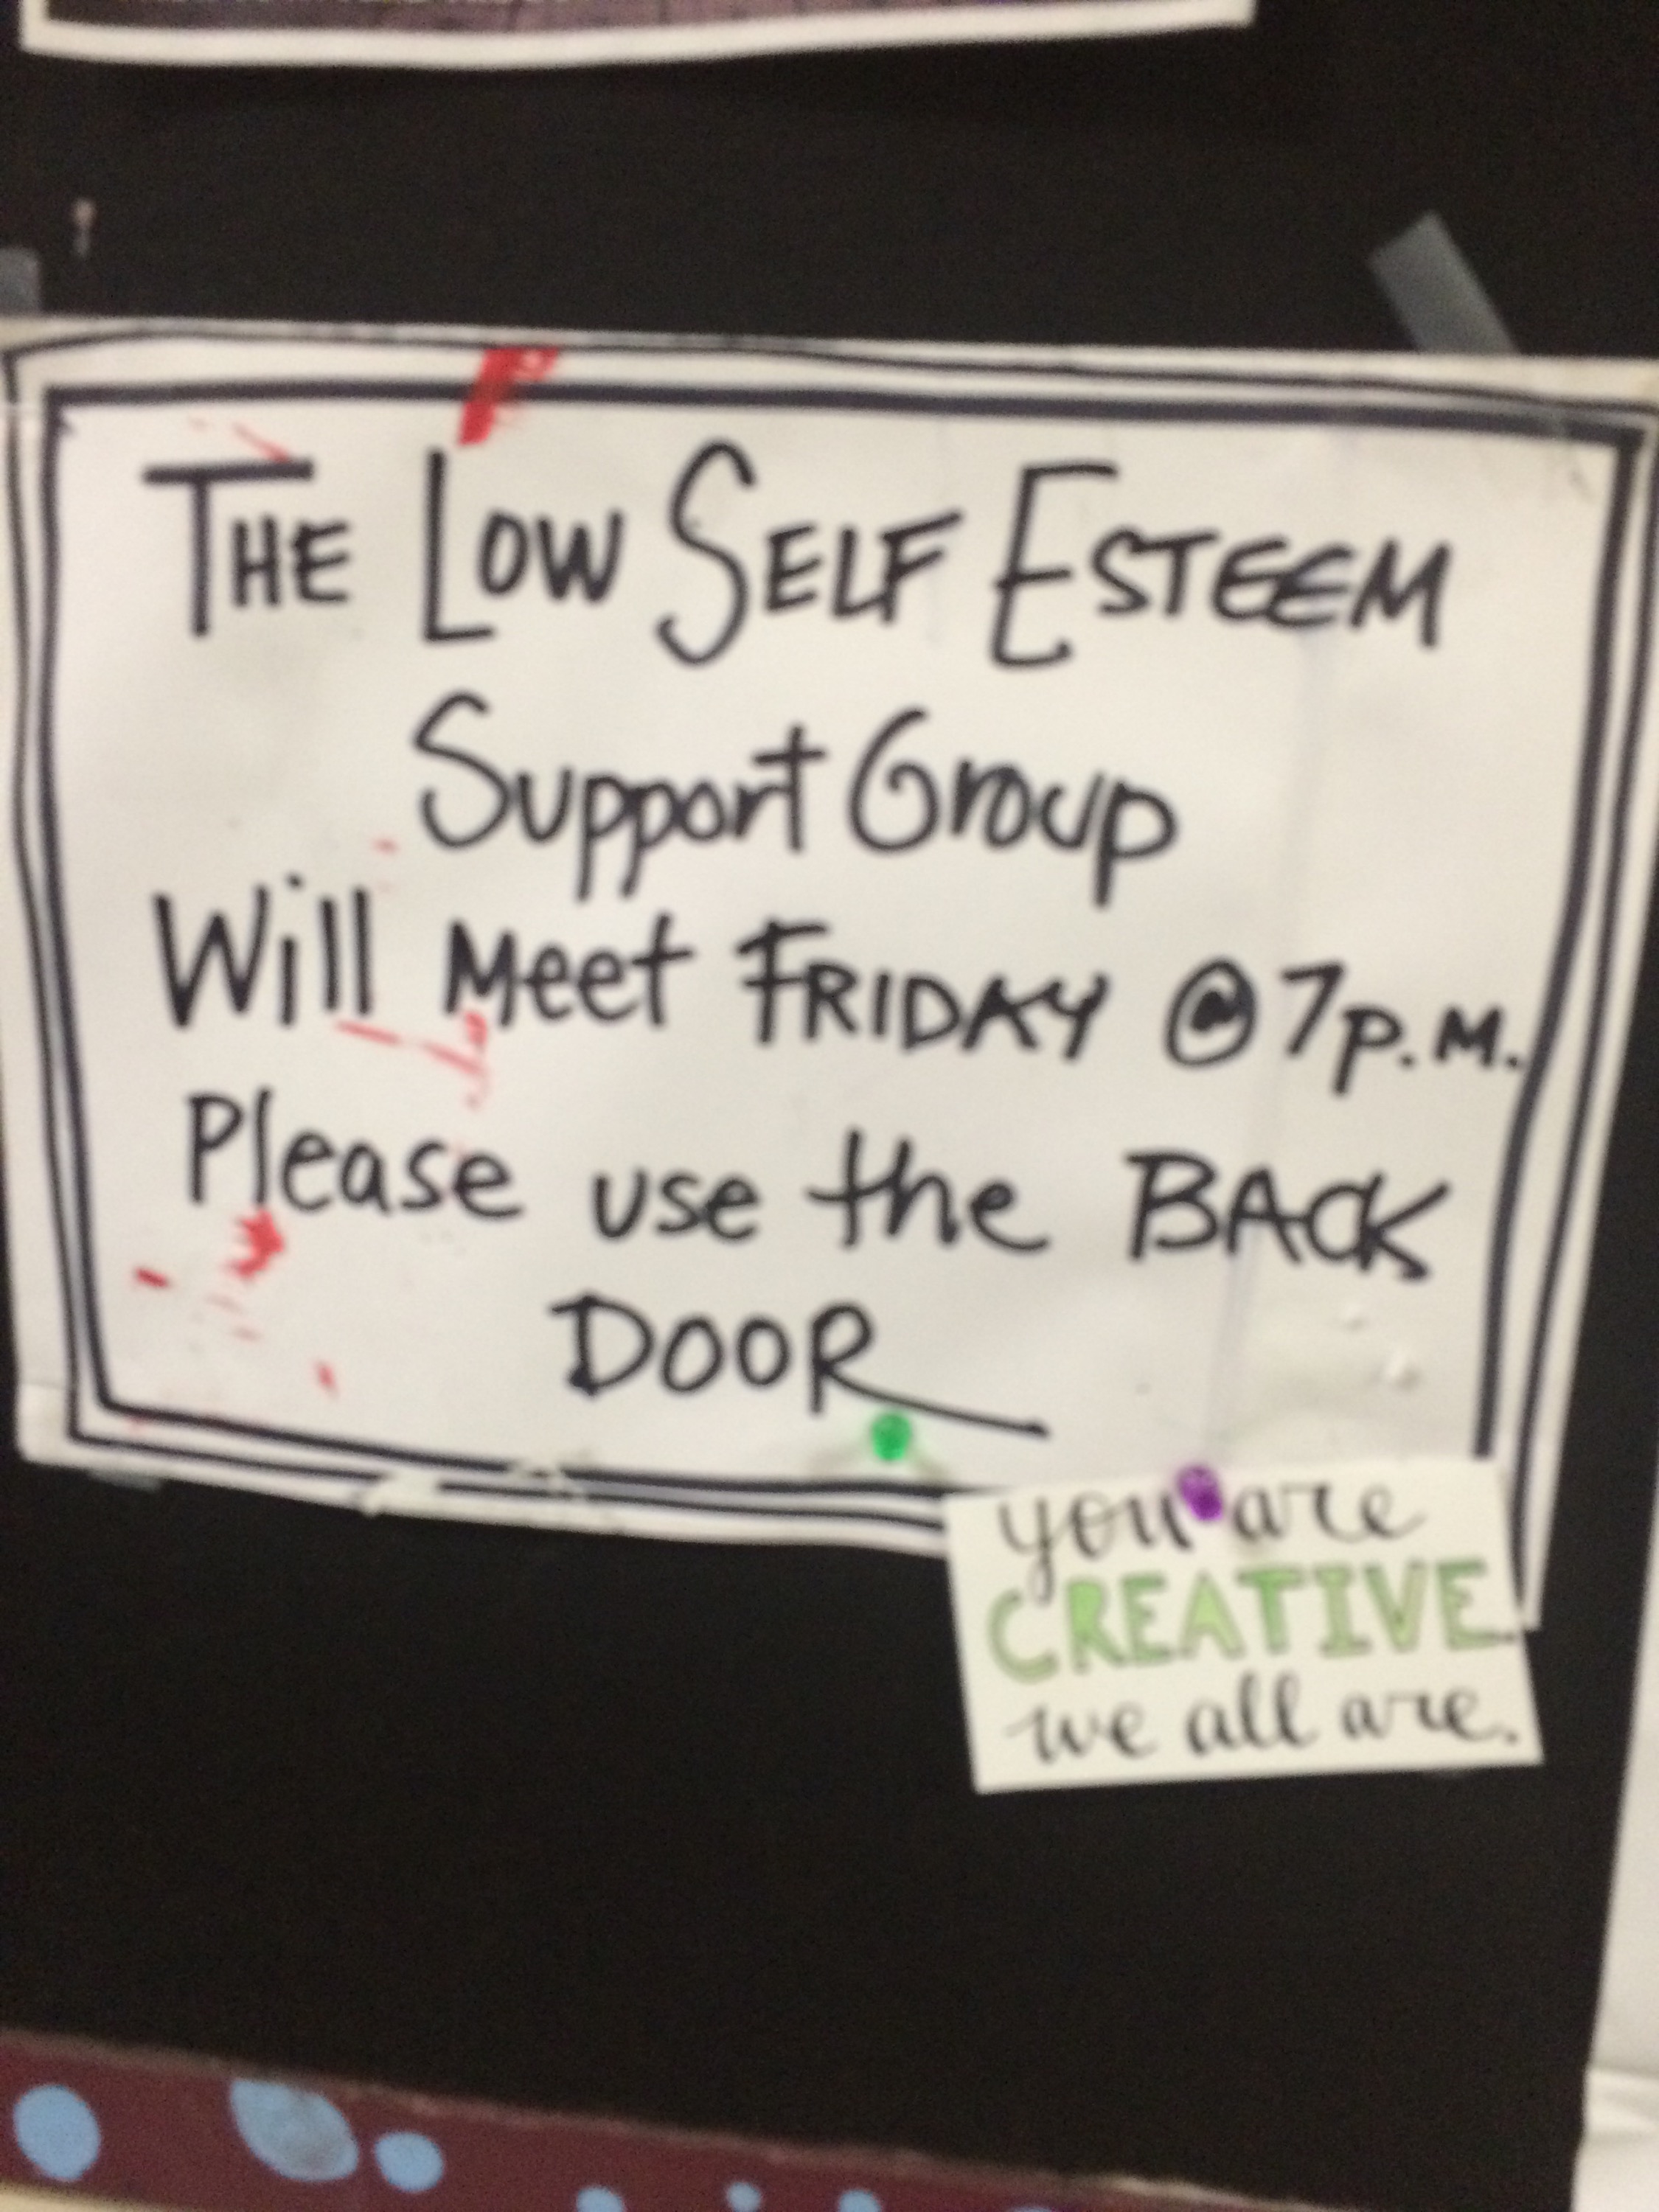 THE LOW SELF ESTEEM
Support Group
Will Meet FRIDAY @ 7 p.M.
Please use the BACK
DOOR
you are
CREATIVE
we all are.